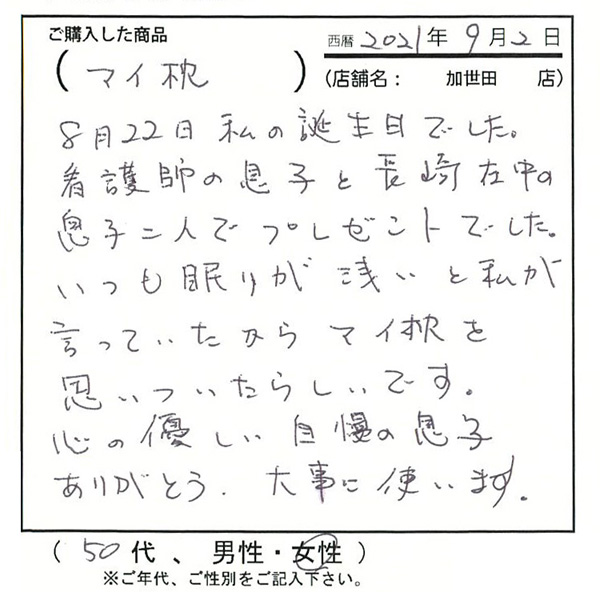 ご購入した商品
西暦 2021年 9月2日
(マイ枕)
(店舗名: 加世田 店)
8月22日 私の誕生日でした。
看護師の息子と長崎在中の
息子二人でプレゼントでした。
いつも眠りが浅いと私が
言っていたからマイ枕を
思いついたらしいです。
心の優しい自慢の息子
ありがとう. 大事に使います。
(50代、男性・女性)
※ご年代、ご性別をご記入下さい。